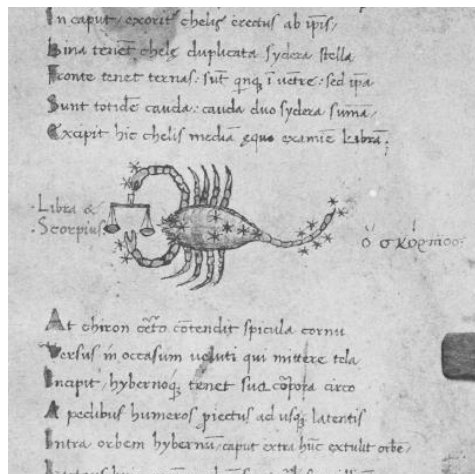 In caput, exorit chelis erectus ab ip̄is,
Bina tenet chele duplicata sydera stella
Fronte tenet ternas: sūt qnqȝ ī vētre: sed ipa
Sunt totidē cauda: cauda duo sydera sumā
Excipit hic chelis mediā equo examīe Librā;
Libra &
Scorpius
ὁ σκορπιος
At chiron cōtendit spicula cornu
Versus in occasum ueluti qui mittere tela
Incipit, hybernoqȝ tenet sua corpora circo
A pedibus humeros piectus ad usqȝ latentis
Intra orbem hybernū, caput extra hūc extulit orbē,